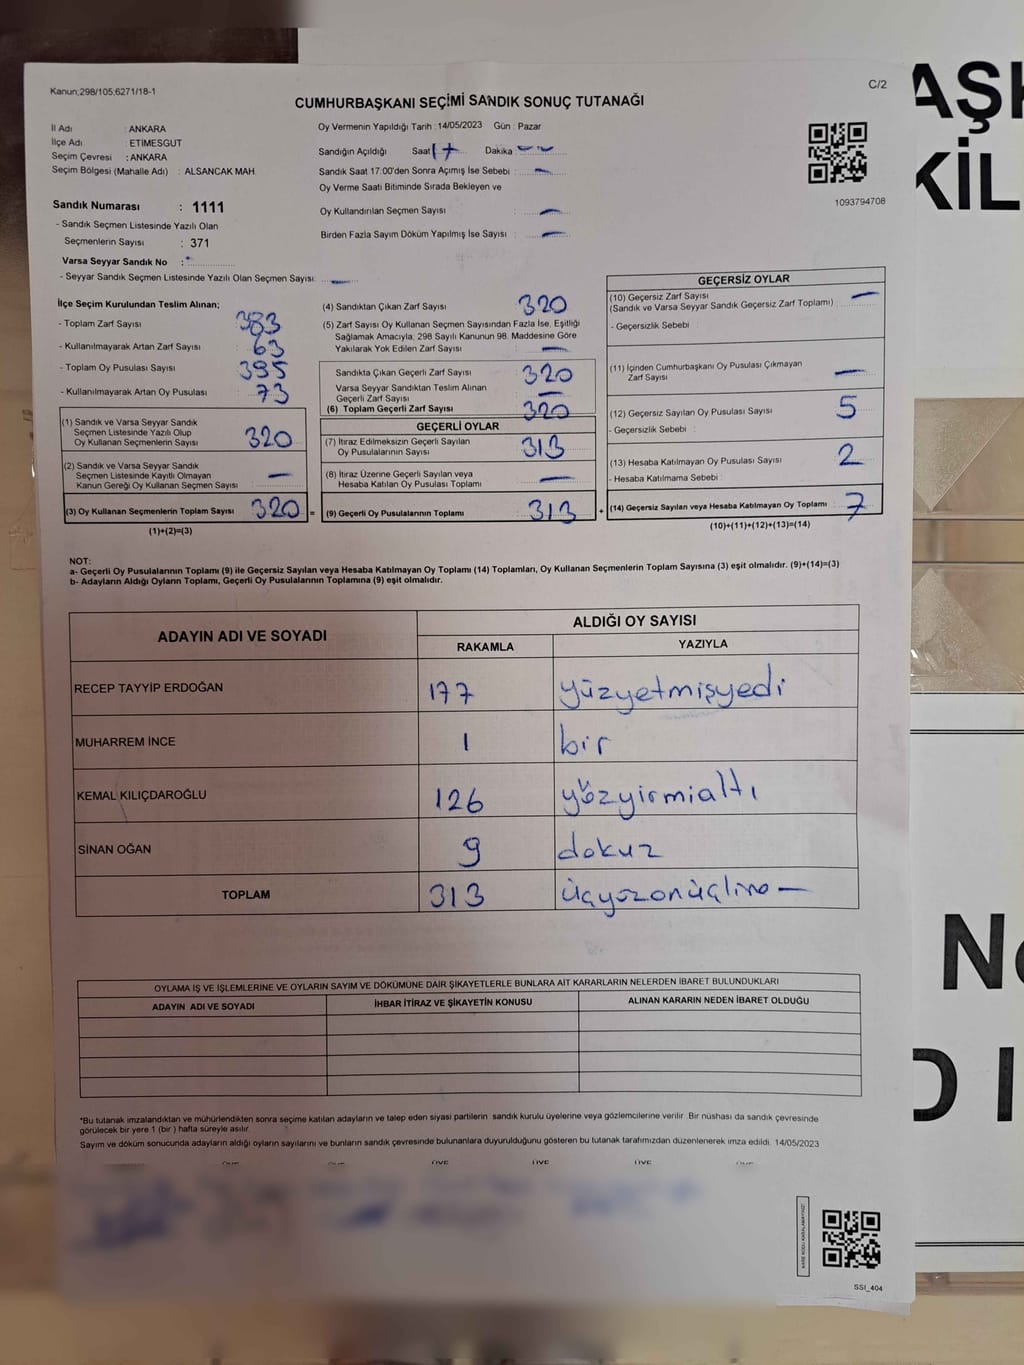 Kanun;298/105,6271/18-1
C/2
CUMHURBAŞKANI SEÇİMİ SANDIK SONUÇ TUTANAĞI
İl Adı : ANKARA
İlçe Adı : ETIMESGUT
Seçim Çevresi : ANKARA
Seçim Bölgesi (Mahalle Adı) : ALSANCAK MAH.
Oy Vermenin Yapıldığı Tarih : 14/05/2023 Gün : Pazar
Sandığın Açıldığı Saat 17 Dakika : --
Sandık Saat 17:00'den Sonra Açımış İse Sebebi : -
Oy Verme Saati Bitiminde Sırada Bekleyen ve
Oy Kullandırılan Seçmen Sayısı : -
Birden Fazla Sayım Döküm Yapılmış İse Sayısı : -
1093794708
Sandık Numarası : 1111
- Sandık Seçmen Listesinde Yazılı Olan
Seçmenlerin Sayısı : 371
Varsa Seyyar Sandık No :
- Seyyar Sandık Seçmen Listesinde Yazılı Olan Seçmen Sayısı: -
İlçe Seçim Kurulundan Teslim Alınan;
- Toplam Zarf Sayısı : 383
- Kullanılmayarak Artan Zarf Sayısı : 63
- Toplam Oy Pusulası Sayısı : 395
- Kullanılmayarak Artan Oy Pusulası : 73
(1) Sandık ve Varsa Seyyar Sandık
Seçmen Listesinde Yazılı Olup
Oy Kullanan Seçmenlerin Sayısı 320
(2) Sandık ve Varsa Seyyar Sandık
Seçmen Listesinde Kayıtlı Olmayan
Kanun Gereği Oy Kullanan Seçmen Sayısı -
(3) Oy Kullanan Seçmenlerin Toplam Sayısı 320 =
(1)+(2)=(3)
(4) Sandıktan Çıkan Zarf Sayısı : 320
(5) Zarf Sayısı Oy Kullanan Seçmen Sayısından Fazla İse, Eşitliği
Sağlamak Amacıyla; 298 Sayılı Kanunun 98. Maddesine Göre
Yakılarak Yok Edilen Zarf Sayısı : -
Sandıkta Çıkan Geçerli Zarf Sayısı : 320
Varsa Seyyar Sandıktan Teslim Alınan
Geçerli Zarf Sayısı : -
(6) Toplam Geçerli Zarf Sayısı : 320
GEÇERLİ OYLAR
(7) İtiraz Edilmeksizin Geçerli Sayılan
Oy Pusulalarının Sayısı : 313
(8) İtiraz Üzerine Geçerli Sayılan veya
Hesaba Katılan Oy Pusulası Toplamı : -
(9) Geçerli Oy Pusulalarının Toplamı : 313 +
GEÇERSİZ OYLAR
(10) Geçersiz Zarf Sayısı
(Sandık ve Varsa Seyyar Sandık Geçersiz Zarf Toplamı) : -
- Geçersizlik Sebebi :
(11) İçinden Cumhurbaşkanı Oy Pusulası Çıkmayan
Zarf Sayısı : -
(12) Geçersiz Sayılan Oy Pusulası Sayısı : 5
- Geçersizlik Sebebi :
(13) Hesaba Katılmayan Oy Pusulası Sayısı : 2
- Hesaba Katılmama Sebebi :
(14) Geçersiz Sayılan veya Hesaba Katılmayan Oy Toplamı : 7
(10)+(11)+(12)+(13)=(14)
NOT:
a- Geçerli Oy Pusulalarının Toplamı (9) ile Geçersiz Sayılan veya Hesaba Katılmayan Oy Toplamı (14) Toplamları, Oy Kullanan Seçmenlerin Toplam Sayısına (3) eşit olmalıdır. (9)+(14)=(3)
b- Adayların Aldığı Oyların Toplamı, Geçerli Oy Pusulalarının Toplamına (9) eşit olmalıdır.
ADAYIN ADI VE SOYADI
ALDIĞI OY SAYISI
RAKAMLA YAZIYLA
RECEP TAYYİP ERDOĞAN 177 yüzyetmişyedi
MUHARREM İNCE 1 bir
KEMAL KILIÇDAROĞLU 126 yüzyirmialtı
SİNAN OĞAN 9 dokuz
TOPLAM 313
OYLAMA İŞ VE İŞLEMLERİNE VE OYLARIN SAYIM VE DÖKÜMÜNE DAİR ŞİKAYETLERLE BUNLARA AİT KARARLARIN NELERDEN İBARET BULUNDUKLARI
ADAYIN ADI VE SOYADI İHBAR İTİRAZ VE ŞİKAYETİN KONUSU ALINAN KARARIN NEDEN İBARET OLDUĞU
*Bu tutanak imzalandıktan ve mühürlendikten sonra seçime katılan adayların ve talep eden siyasi partilerin sandık kurulu üyelerine veya gözlemcilerine verilir. Bir nüshası da sandık çevresinde
görülecek bir yere 1 (bir ) hafta süreyle asılır.
Sayım ve döküm sonucunda adayların aldığı oyların sayılarını ve bunların sandık çevresinde bulunanlara duyurulduğunu gösteren bu tutanak tarafımızdan düzenlenerek imza edildi. 14/05/2023
ÜYE ÜYE ÜYE ÜYE ÜYE
KARE KODU KARALAMAYINIZ!
SSI_404
AŞK
KİL
No